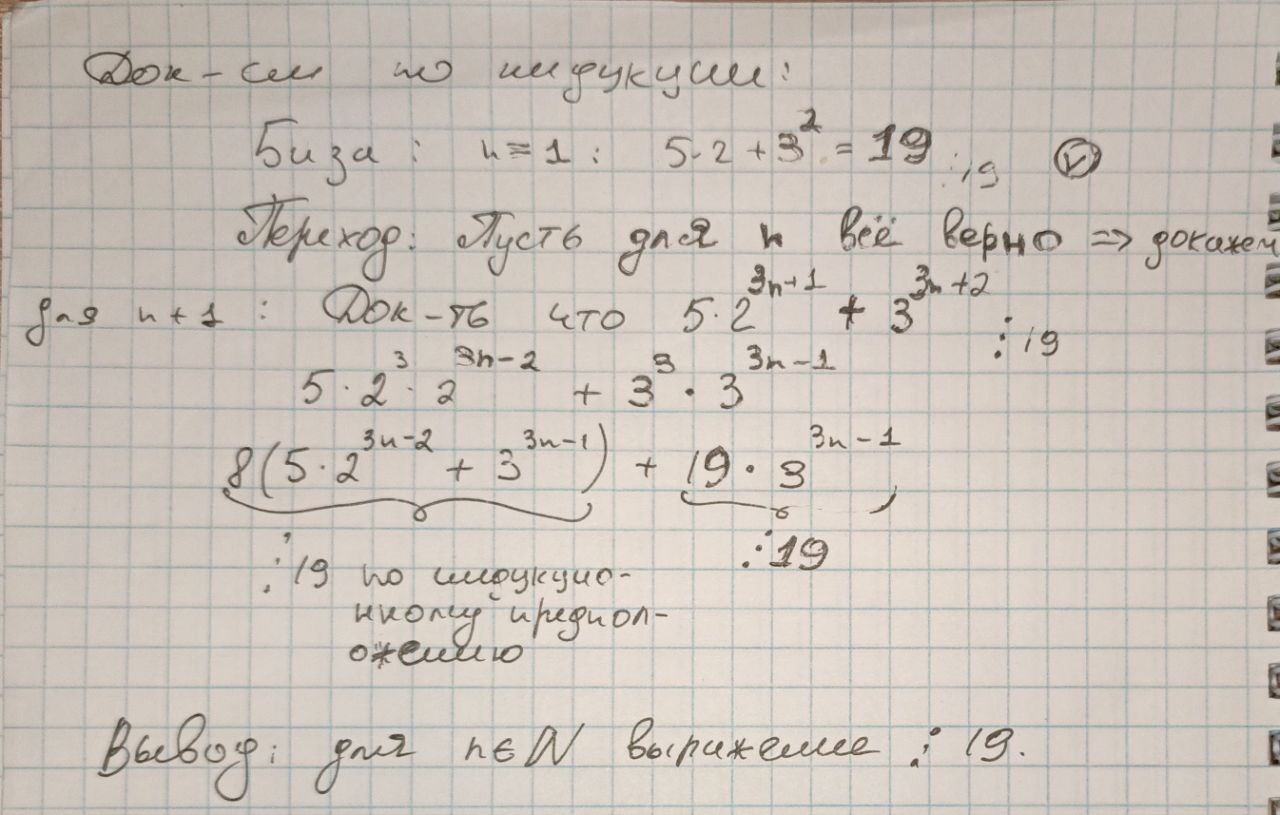 Док-ем по индукции:
База: n=1: 5·2+3² = 19 ⋮19 ✓
Переход: Пусть для n всё верно => докажем
для n+1: Док-ть что 5·2^{3n+1} + 3^{3n+2} ⋮19
5·2³·2^{3n-2} + 3³·3^{3n-1}
8(5·2^{3n-2} + 3^{3n-1}) + 19·3^{3n-1}
⋮19 по индукцио- ⋮19
нному предпол-
ожению
Вывод: для n∈N выражение ⋮ 19.